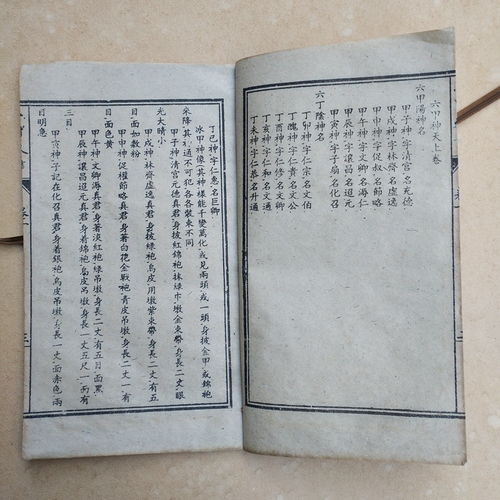 六甲神天上卷
六甲陽神名
甲子神字清宮名元德
甲戌神字林齋名虛逸
甲申神字促叔名節略
甲午神字文卿名海仁
甲辰神字讓昌名逗元
甲寅神字子扇名化召
六丁陰神名
丁卯神字仁宗名文伯
丁醜神字仁貴名文公
丁酉神字仁修名文卿
丁亥神字仁和名文通
丁未神字仁恭名升通
丁巳神字仁惠名巨卿
冰甲神像其神樣能千變萬化或見兩頭或一頭身披金甲或錦袍
來降其礼通不可犯各各裝束不同
甲子神清宮元德真君身披紅錦袍抹綠巾墩金束帶身長二丈眼
光大睛小
甲戌神林齋虛逸真君身披綠袍烏皮用墩紫束帶身長二丈有五
目面如數粉
甲申神促權節略真君身著白花金戰袍青皮吊墩身長二丈一
目面色黄
甲午神文卿海真君身著淡紅袍綠吊墩身長二丈有五目面黑
甲辰神讓昌逗元真君身着錦袍烏皮吊墩身長一丈五尺一面有
三目
甲寅神子記在化召真君身着銀袍烏皮吊墩身長一丈面赤色兩
目明急